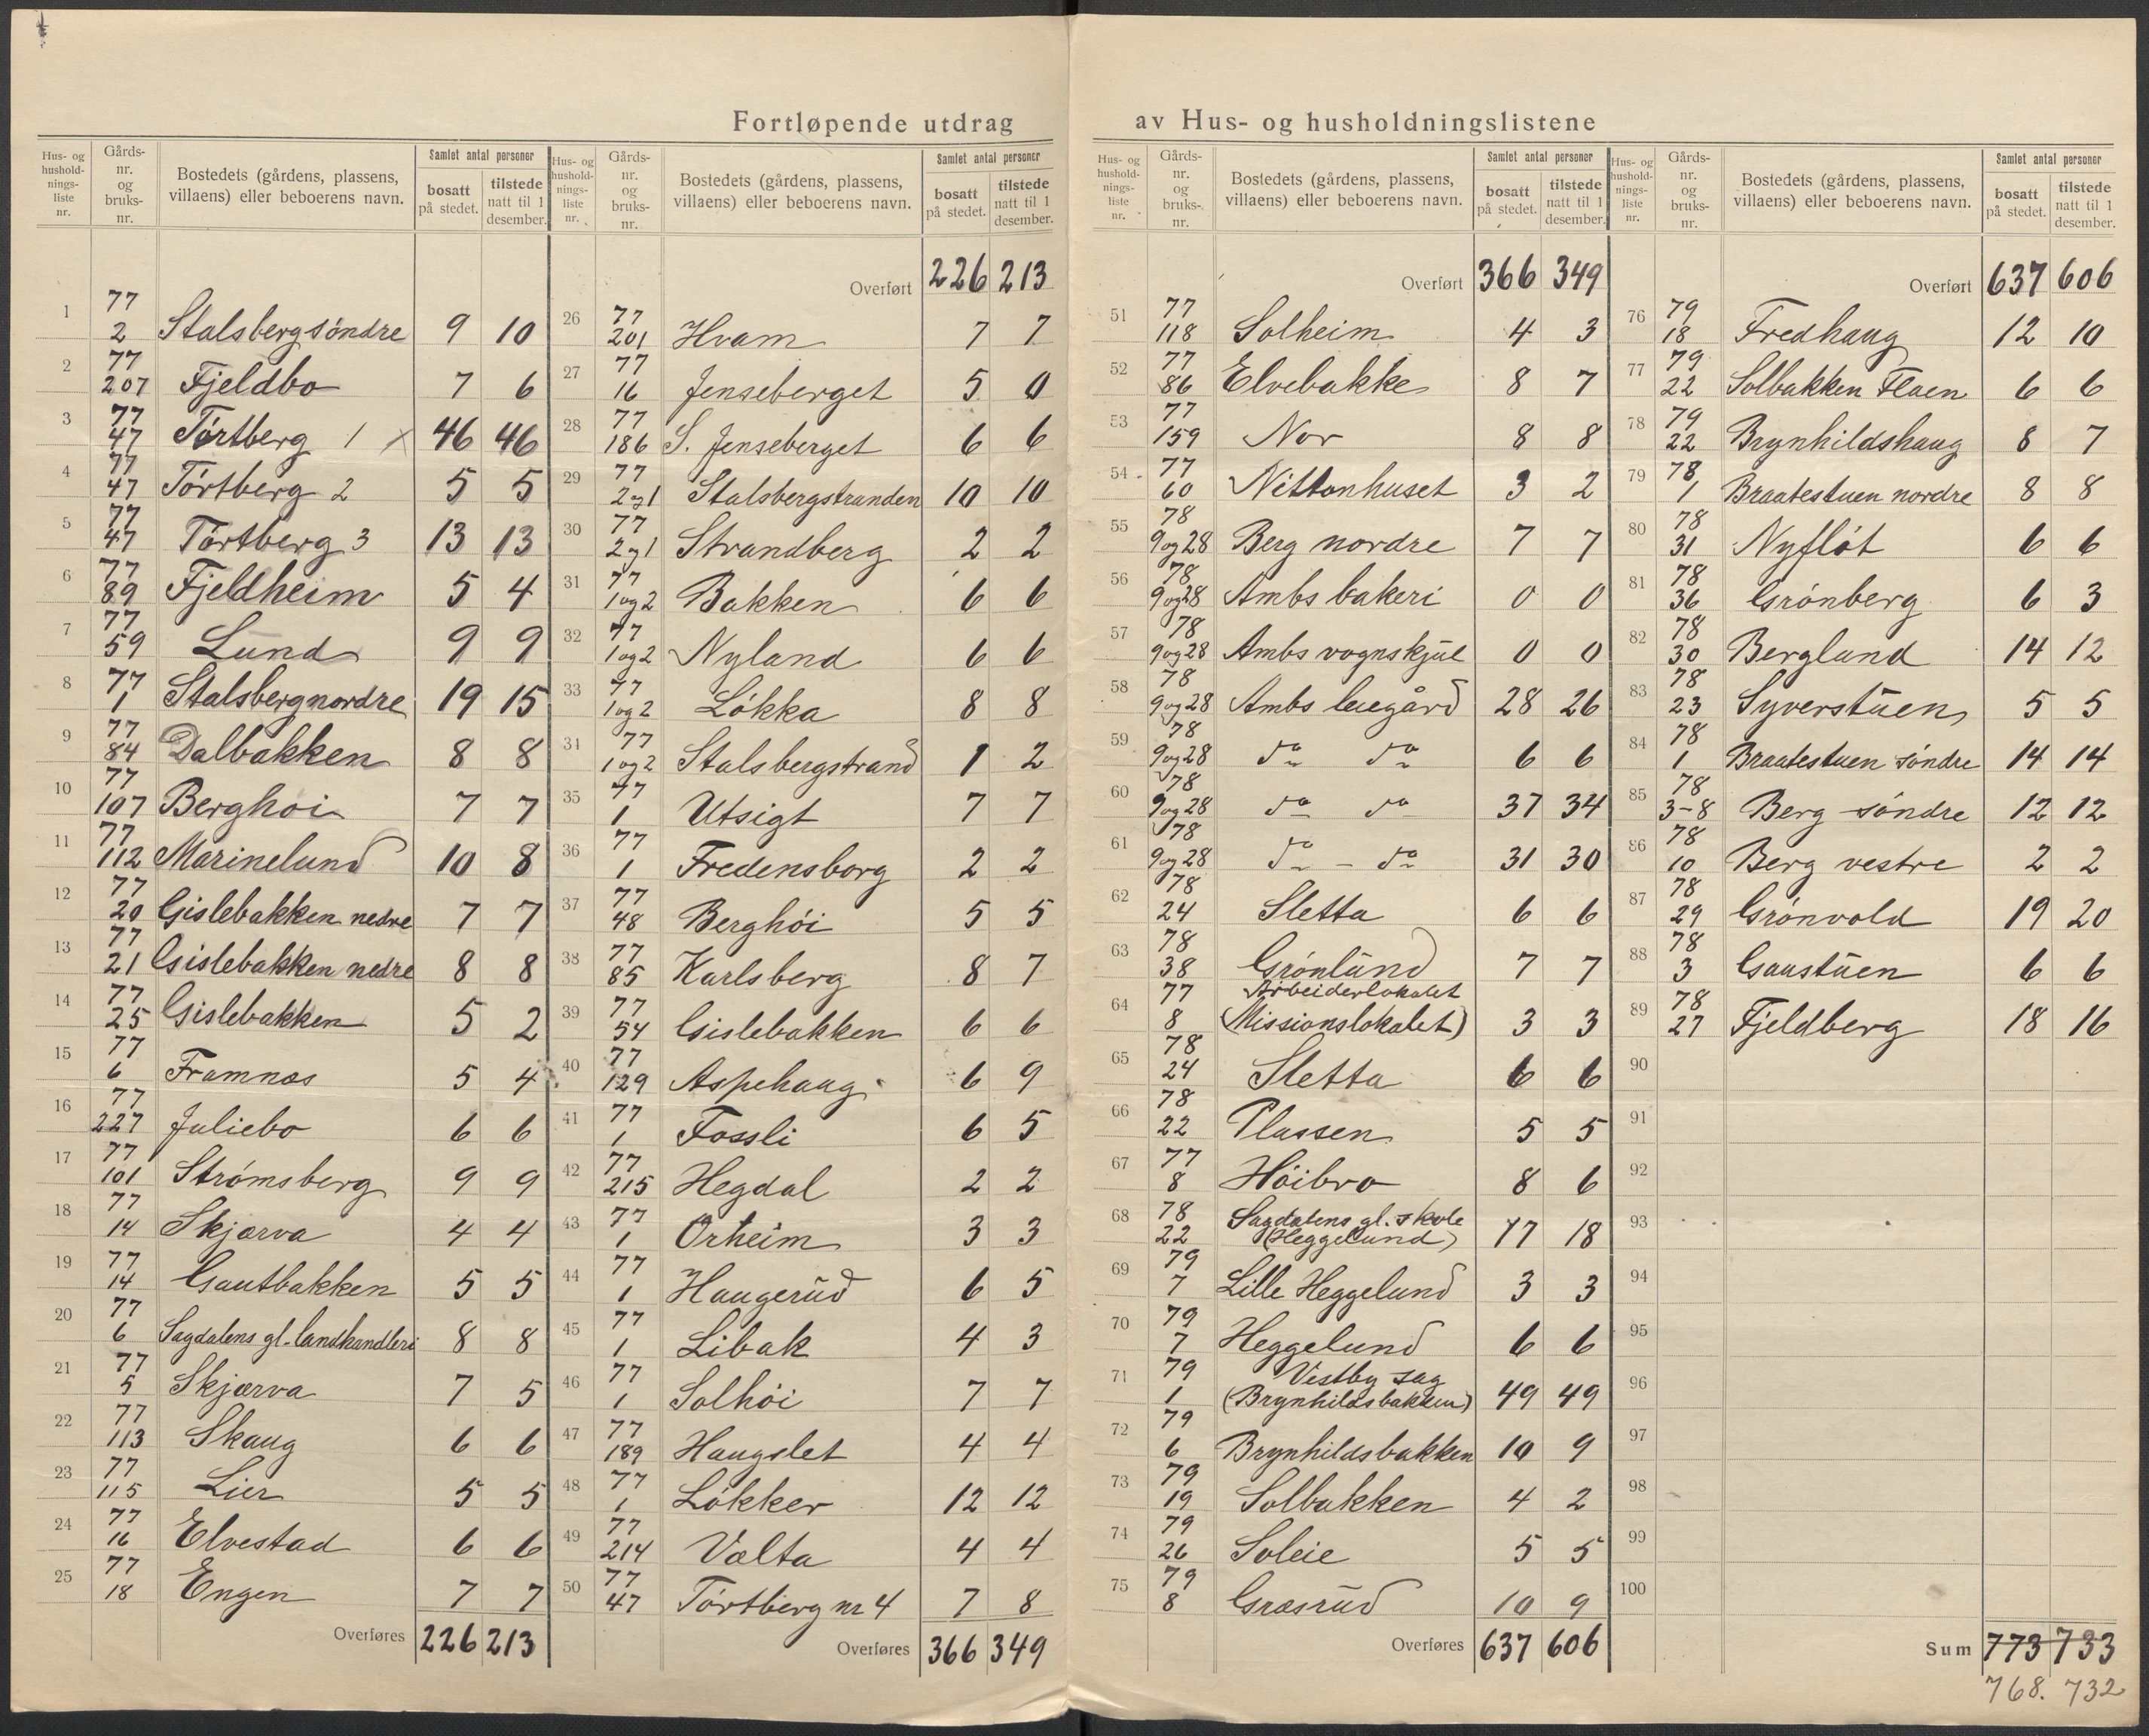 Fortløpende utdrag av Hus- og husholdningslistene
Hus- og husholdnings-liste nr. Gårds-nr. og bruks-nr. Bostedets (gårdens, plassens, villaens) eller beboerens navn. Samlet antal personer bosatt på stedet. tilstede natt til 1 desember.
1 77 2 Stalsberg söndre 9 10
2 77 207 Fjeldbo 7 6
3 77 47 Törtberg 1 x 46 46
4 77 47 Törtberg 2 5 5
5 77 47 Törtberg 3 13 13
6 77 89 Fjeldheim 5 4
7 77 59 Lund 9 9
8 77 1 Stalsberg nordre 19 15
9 77 84 Dalbakken 8 8
10 77 107 Berghöi 7 7
11 77 112 Marinelund 10 8
12 77 20 Gislebakken nedre 7 7
13 77 21 Gislebakken nedre 8 8
14 77 25 Gislebakken 5 2
15 77 6 Framnæs 5 4
16 77 227 Juliebo 6 6
17 77 101 Strömsberg 9 9
18 77 14 Skjærva 4 4
19 77 14 Gautbakken 5 5
20 77 6 Sagdalens gl. landhandleri 8 8
21 77 5 Skjærva 7 5
22 77 113 Skaug 6 6
23 77 115 Lier 5 5
24 77 16 Elvestad 6 6
25 77 18 Engen 7 7
Overføres 226 213
Hus- og husholdnings-liste nr. Gårds-nr. og bruks-nr. Bostedets (gårdens, plassens, villaens) eller beboerens navn. Samlet antal personer bosatt på stedet. tilstede natt til 1 desember.
Overført 226 213
26 77 201 Hvam 7 7
27 77 16 Jenseberget 5 0
28 77 186 S. Jenseberget 6 6
29 77 2 og 1 Stalsbergstranden 10 10
30 77 2 og 1 Strandberg 2 2
31 77 1 og 2 Bakken 6 6
32 77 1 og 2 Nyland 6 6
33 77 1 og 2 Lökka 8 8
34 77 1 og 2 Stalsbergstrand 1 2
35 77 1 Utsigt 7 7
36 77 1 Fredensborg 2 2
37 77 48 Berghöi 5 5
38 77 85 Karlsberg 8 7
39 77 54 Gislebakken 6 6
40 77 129 Aspehaug 6 9
41 77 1 Fossli 6 5
42 77 215 Hegdal 2 2
43 77 1 Orheim 3 3
44 77 1 Haugerud 6 5
45 77 1 Libak 4 3
46 77 1 Solhöi 7 7
47 77 189 Haugslet 4 4
48 77 1 Lökker 12 12
49 77 214 Vælta 4 4
50 77 47 Törtberg nr 4 7 8
Overføres 366 349
Hus- og husholdnings-liste nr. Gårds-nr. og bruks-nr. Bostedets (gårdens, plassens, villaens) eller beboerens navn. Samlet antal personer bosatt på stedet. tilstede natt til 1 desember.
Overført 366 349
51 77 118 Solheim 4 3
52 77 86 Elvebakke 8 7
53 77 159 Nor 8 8
54 77 60 Nittonhuset 3 2
55 78 9 og 28 Berg nordre 7 7
56 78 9 og 28 Ambs bakeri 0 0
57 78 9 og 28 Ambs vognskjul 0 0
58 78 9 og 28 Ambs leiegård 28 26
59 78 9 og 28 do do 6 6
60 78 9 og 28 do do 37 34
61 78 9 og 28 do - do 31 30
62 78 24 Sletta 6 6
63 78 38 Grönlund 7 7
64 77 8 Arbeiderlokalet
(Missionslokalet) 3 3
65 78 24 Sletta 6 6
66 78 22 Plassen 5 5
67 77 8 Höibro 8 6
68 78 22 Sagdalens gl. skole
(Heggelund) 17 18
69 79 7 Lille Heggelund 3 3
70 79 7 Heggelund 6 6
71 79 1 Vestby sag
(Brynhildsbakken) 49 49
72 79 6 Brynhildsbakken 10 9
73 79 19 Solbakken 4 2
74 79 26 Soleie 5 5
75 79 8 Græsrud 10 9
Overføres 637 606
Hus- og husholdnings-liste nr. Gårds-nr. og bruks-nr. Bostedets (gårdens, plassens, villaens) eller beboerens navn. Samlet antal personer bosatt på stedet. tilstede natt til 1 desember.
Overført 637 606
76 79 18 Fredhaug 12 10
77 79 22 Solbakken Flaen 6 6
78 79 22 Brynhildshaug 8 7
79 78 1 Braatestuen nordre 8 8
80 78 31 Nyflöt 6 6
81 78 36 Grönberg 6 3
82 78 30 Berglund 14 12
83 78 23 Syverstuen 5 5
84 78 1 Braatestuen söndre 14 14
85 78 3-8 Berg söndre 12 12
86 78 10 Berg vestre 2 2
87 78 29 Grönvold 19 20
88 78 3 Gaustuen 6 6
89 78 27 Fjeldberg 18 16
90
91
92
93
94
95
96
97
98
99
100
Sum 773 733
768. 732